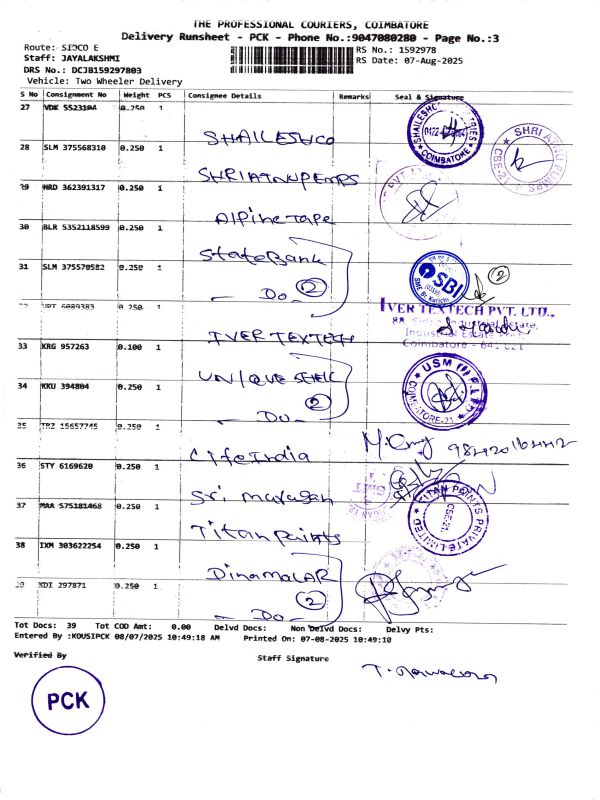 THE PROFESSIONAL COURIERS, COIMBATORE
Delivery Runsheet - PCK - Phone No.:9047080280 - Page No.:3
Route: SIDCO E
RS No.: 1592978
Staff: JAYALAKSHMI
RS Date: 07-Aug-2025
DRS No.: DCJB159297803
Vehicle: Two Wheeler Delivery
S No Consignment No Weight PCS Consignee Details Remarks Seal & Signature
27 VDK 5523104 0.250 1
SHAILESHCO
COIMBATORE
28 SLM 375568310 0.250 1
29 NRD 362391317 0.250 1
Alpine Tape
30 BLR 5352118599 0.250 1
State Bank
31 SLM 375570582 0.250 1
Do 2
SBI
2
6089383 0.250 1
IVER TEXTECH
IVER TEXTECH PVT. LTD.,
Industrial Estate
Coimbatore - 641 021
33 KRG 957263 0.100 1
34 KKU 394804 0.250 1
Do 2
USM
COIMBATORE-21
TRZ 15657745 0.250 1
Life India
36 STY 6169620 0.250 1
Sri Murugan
37 MAA 575181468 0.250 1
Titan Paints
TITAN PAINTS PRIVATE LIMITED
CBE-21.
38 IXM 303622254 0.250 1
DINAMALAR
XDI 297871 0.250 1
Do 2
Tot Docs: 39 Tot COD Amt: 0.00 Delvd Docs: Non Delvd Docs: Delvy Pts:
Entered By :KOUSIPCK 08/07/2025 10:49:18 AM Printed On: 07-08-2025 10:49:10
Verified By
Staff Signature
PCK